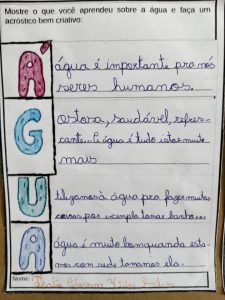 Mostre o que você aprendeu sobre a água e faça um
acróstico bem criativo:
A água é importante pra nós
seres humanos.
G ostosa, saudável, refres-
cante... a água é tudo isto e muito
mais
U tilizamos à água pra fazer muitas
coisas por exemplo tomar banho...
A água é muito boa quando esta-
mos com sede tomamos ela.
Nome: